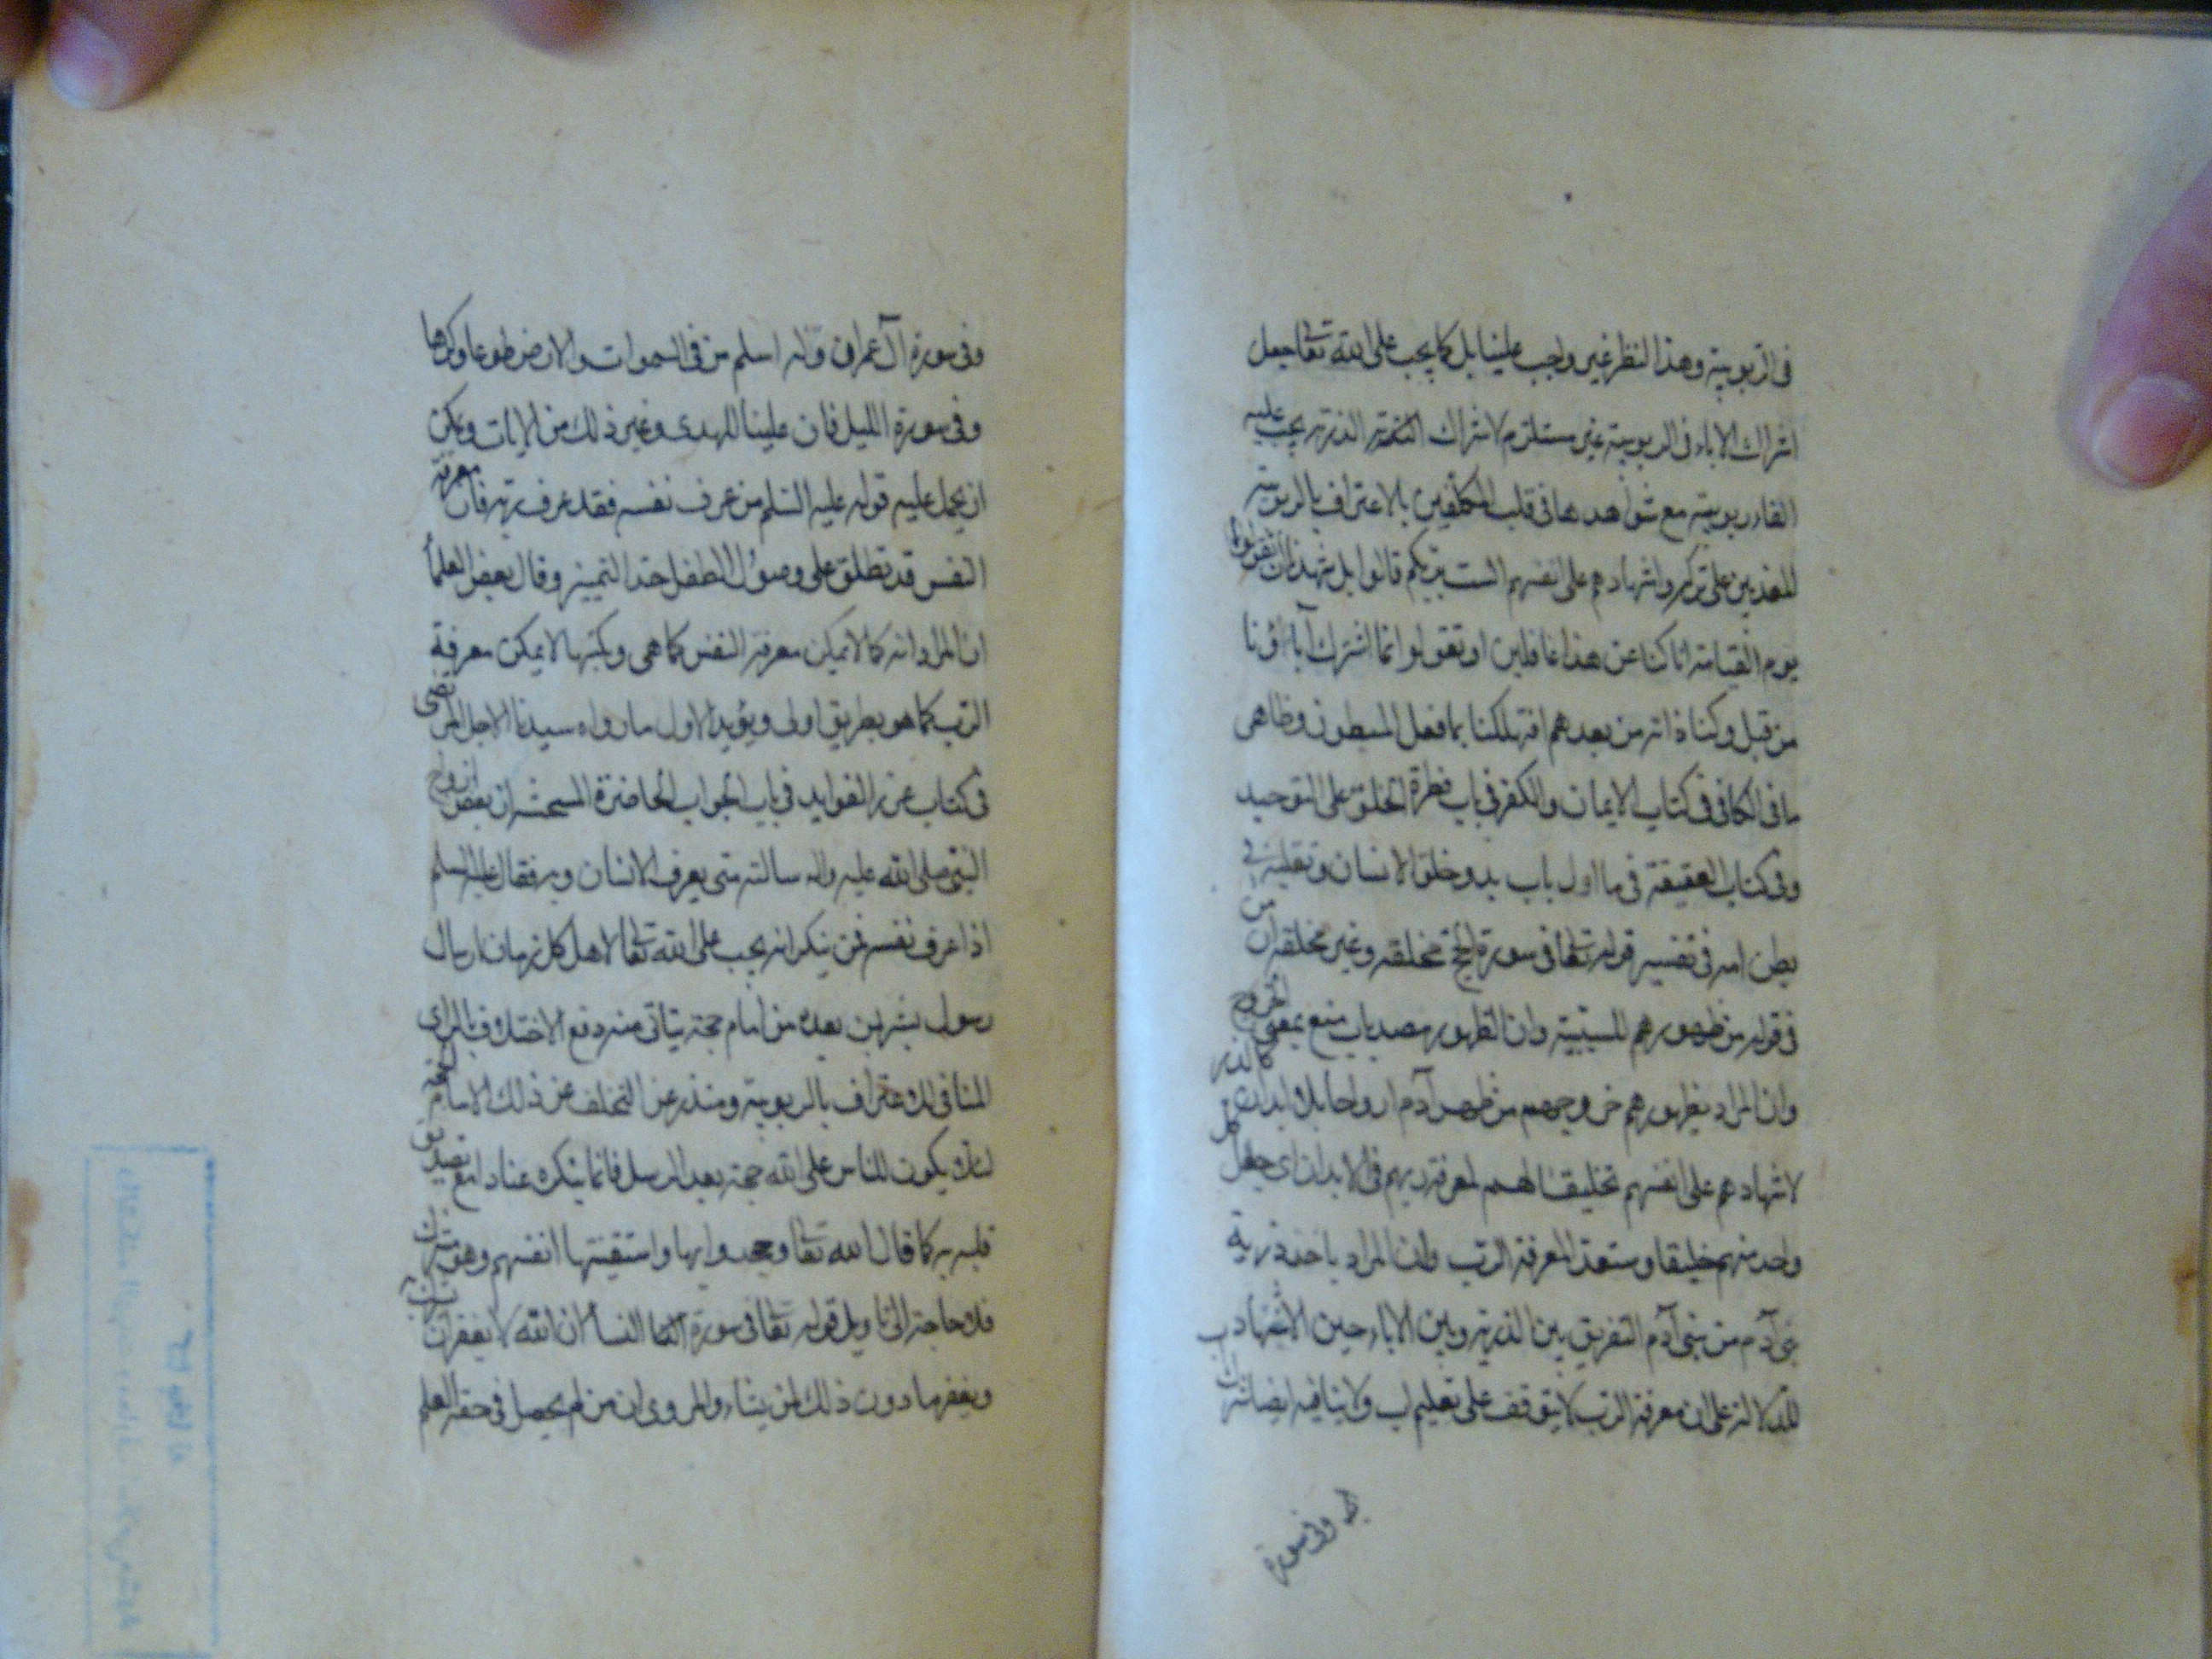 فى الربوبية وهذا النظر غير واجب علينا بل كما يجب على الله تعالى جعل
اشراك الاباء فى الربوبية غير مستلزم لاشراك الذرية يجب عليه
بربوبيته مع شواهدها فى قلب المكلفين بالاعتراف بالربوبية
على تركه واشهادهم على انفسهم الست بربكم قالوا بلى شهدنا ان تقولوا
يوم القيامة انا كنا عن هذا غافلين او تقولوا انما اشرك آباؤنا
من قبل وكنا ذرية من بعدهم افتهلكنا بما فعل المبطلون وظاهر
ما فى الكافى فى كتاب الايمان والكفر فى باب فطرة الخلق على التوحيد
وفى كتاب العقيقة فى باب بدو خلق الانسان وتقلبه فى
بطن امه فى تفسير قوله تعالى فى سورة الحج مخلقه وغير مخلقه ان من
فى قوله من ظهورهم للسببية وان الظهور مصدر باب منع بمعنى الخروج
وان المراد بظهورهم خروجهم من ظهر آدم ارواحا بلا ابدان كالذر
لاشهادهم على انفسهم تخليقا لهم لمعرفة ربهم فى الابدان اى جعل كل
واحد منهم خليقا ومستعدا لمعرفة الرب وان المراد باخذ ذرية
بنى آدم من بنى آدم التفريق بين الذرية وبين الاباء حين الاشهاد
للدلالة على ان معرفة الرب لا يتوقف على تعليم اب ولا ينافيه ايضا اشراك اب
وفى سورة
وفى سورة آل عمران وله اسلم من فى السموات والارض طوعا وكرها
وفى سورة الليل فان علينا للهدى وغير ذلك من الايات ويمكن
ان يحمل عليه قوله عليه السلم من عرف نفسه فقد عرف ربه فان معرفة
النفس قد تطلق على وصول الطفل حد التميز وقال بعض العلما
ان المراد انه كما لا يمكن معرفة النفس كما هى وبكنهها لا يمكن معرفة
الرب كما هو بطريق اولى ويؤيد الاول ما رواه سيدنا الاجل المرتضى
فى كتاب غرر الفوايد فى باب الجواب الحاضرة المسكتة ان بعض ازواج
النبى صلى الله عليه واله سالته متى يعرف الانسان ربه فقال عليه السلم
اذا عرف نفسه فمن ينكر انه يجب على الله تعالى لاهل كل زمان ارسال
رسول بشر بمن بعده من امام حجة يتاتى منه دفع الاختلاف بالراى
المنافى للاعتراف بالربوبية ومنذر عن التخلف عن ذلك الامام
لئلا يكون للناس على الله حجة بعد الرسل فانما ينكره عنادا مع تصديق
قلبه به كما قال الله تعالى وجحدوا بها واستيقنتها انفسهم وهو مشرك
فلا حاجة الى تاويل قوله تعالى فى سورة النسا ان الله لا يغفر ان يشرك به
ويغفر ما دون ذلك لمن يشاء والمروى ان من لم يحصل فى حقه العلم